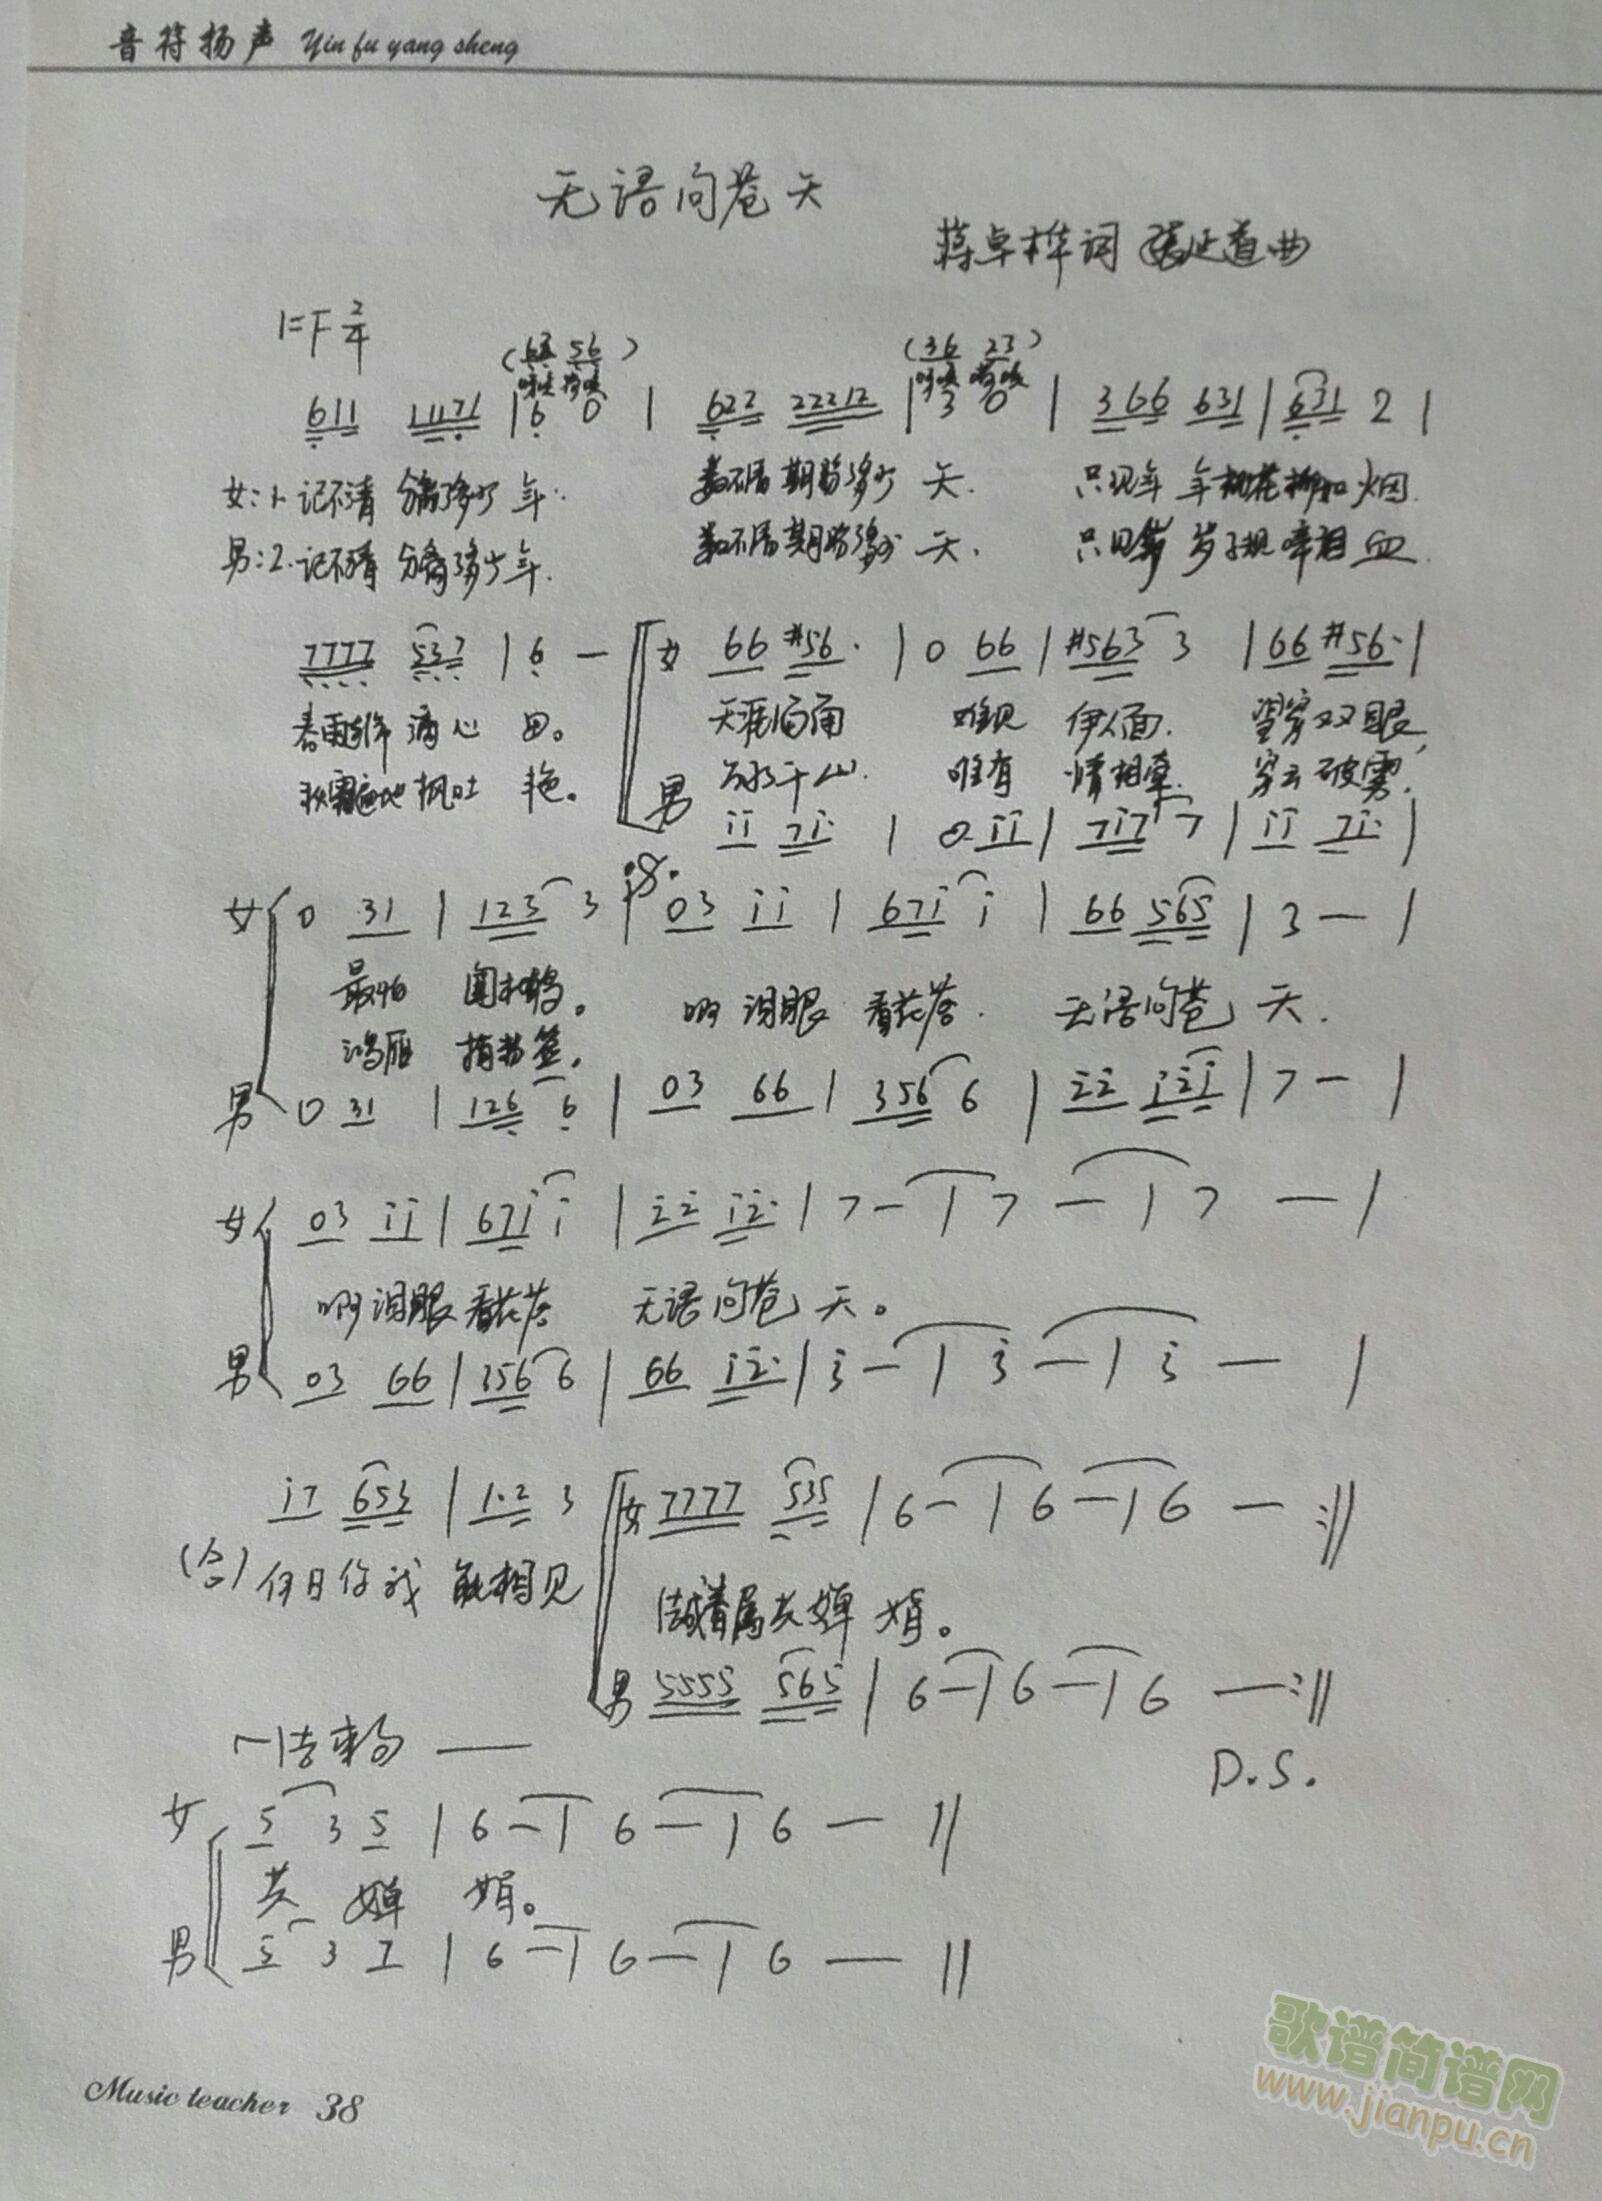 音符扬声 Yin fu yang sheng
无语问苍天
蒋卓桦词 张延道曲
1=F 2/4
(63 56) (36 23)
611 11171 | 6 0 | 622 22212 | 3 0 | 366 631 | 631 2 |
女:1.记不清 分离了多少 年. 数不届 期盼了多少 天. 只见年 年桃花柳如烟.
男:2.记不清 分离了多少 年. 数不届 期盼了多少 天. 只见岁 岁子规啼相血.
7777 537 | 6 — 女 66 #56· | 0 66 | #563 3 | 66 #56· |
春雨绵绵滴心 田。 天涯海角 难见 伊人面. 望穿双眼,
秋霜遍地枫吐 艳。 万水千山. 唯有 情相牵. 穿云破雾,
男 ii 7i· | 0 ii | 7i7 7 | ii 7i· |
女 0 31 | 123 3 | 03 ii | 67i i | 66 565 | 3 — |
最怕 闻杜鹃。 啊 泪眼 看花落. 无语问苍 天.
鸿雁 捎书签.
男 0 31 | 126 6 | 03 66 | 356 6 | 22 i2i | 7 — |
女 03 ii | 67i i | 22 i2· | 7 — | 7 — | 7 — |
啊 泪眼 看花落 无语问苍 天。
男 03 66 | 356 6 | 66 i2· | 3 — | 3 — | 3 — |
i7 653 | 1·2 3 女 7777 535 | 6 — | 6 — | 6 — :||
(合) 何日你我 能相见 眷属共婵 娟。
男 5555 565 | 6 — | 6 — | 6 — :||
结束句 ——
D.S.
女 5 3 5 | 6 — | 6 — | 6 — ||
共 婵 娟。
男 5 3 7 | 6 — | 6 — | 6 — ||
Music teacher 38
歌谱简谱网
www.jianpu.cn